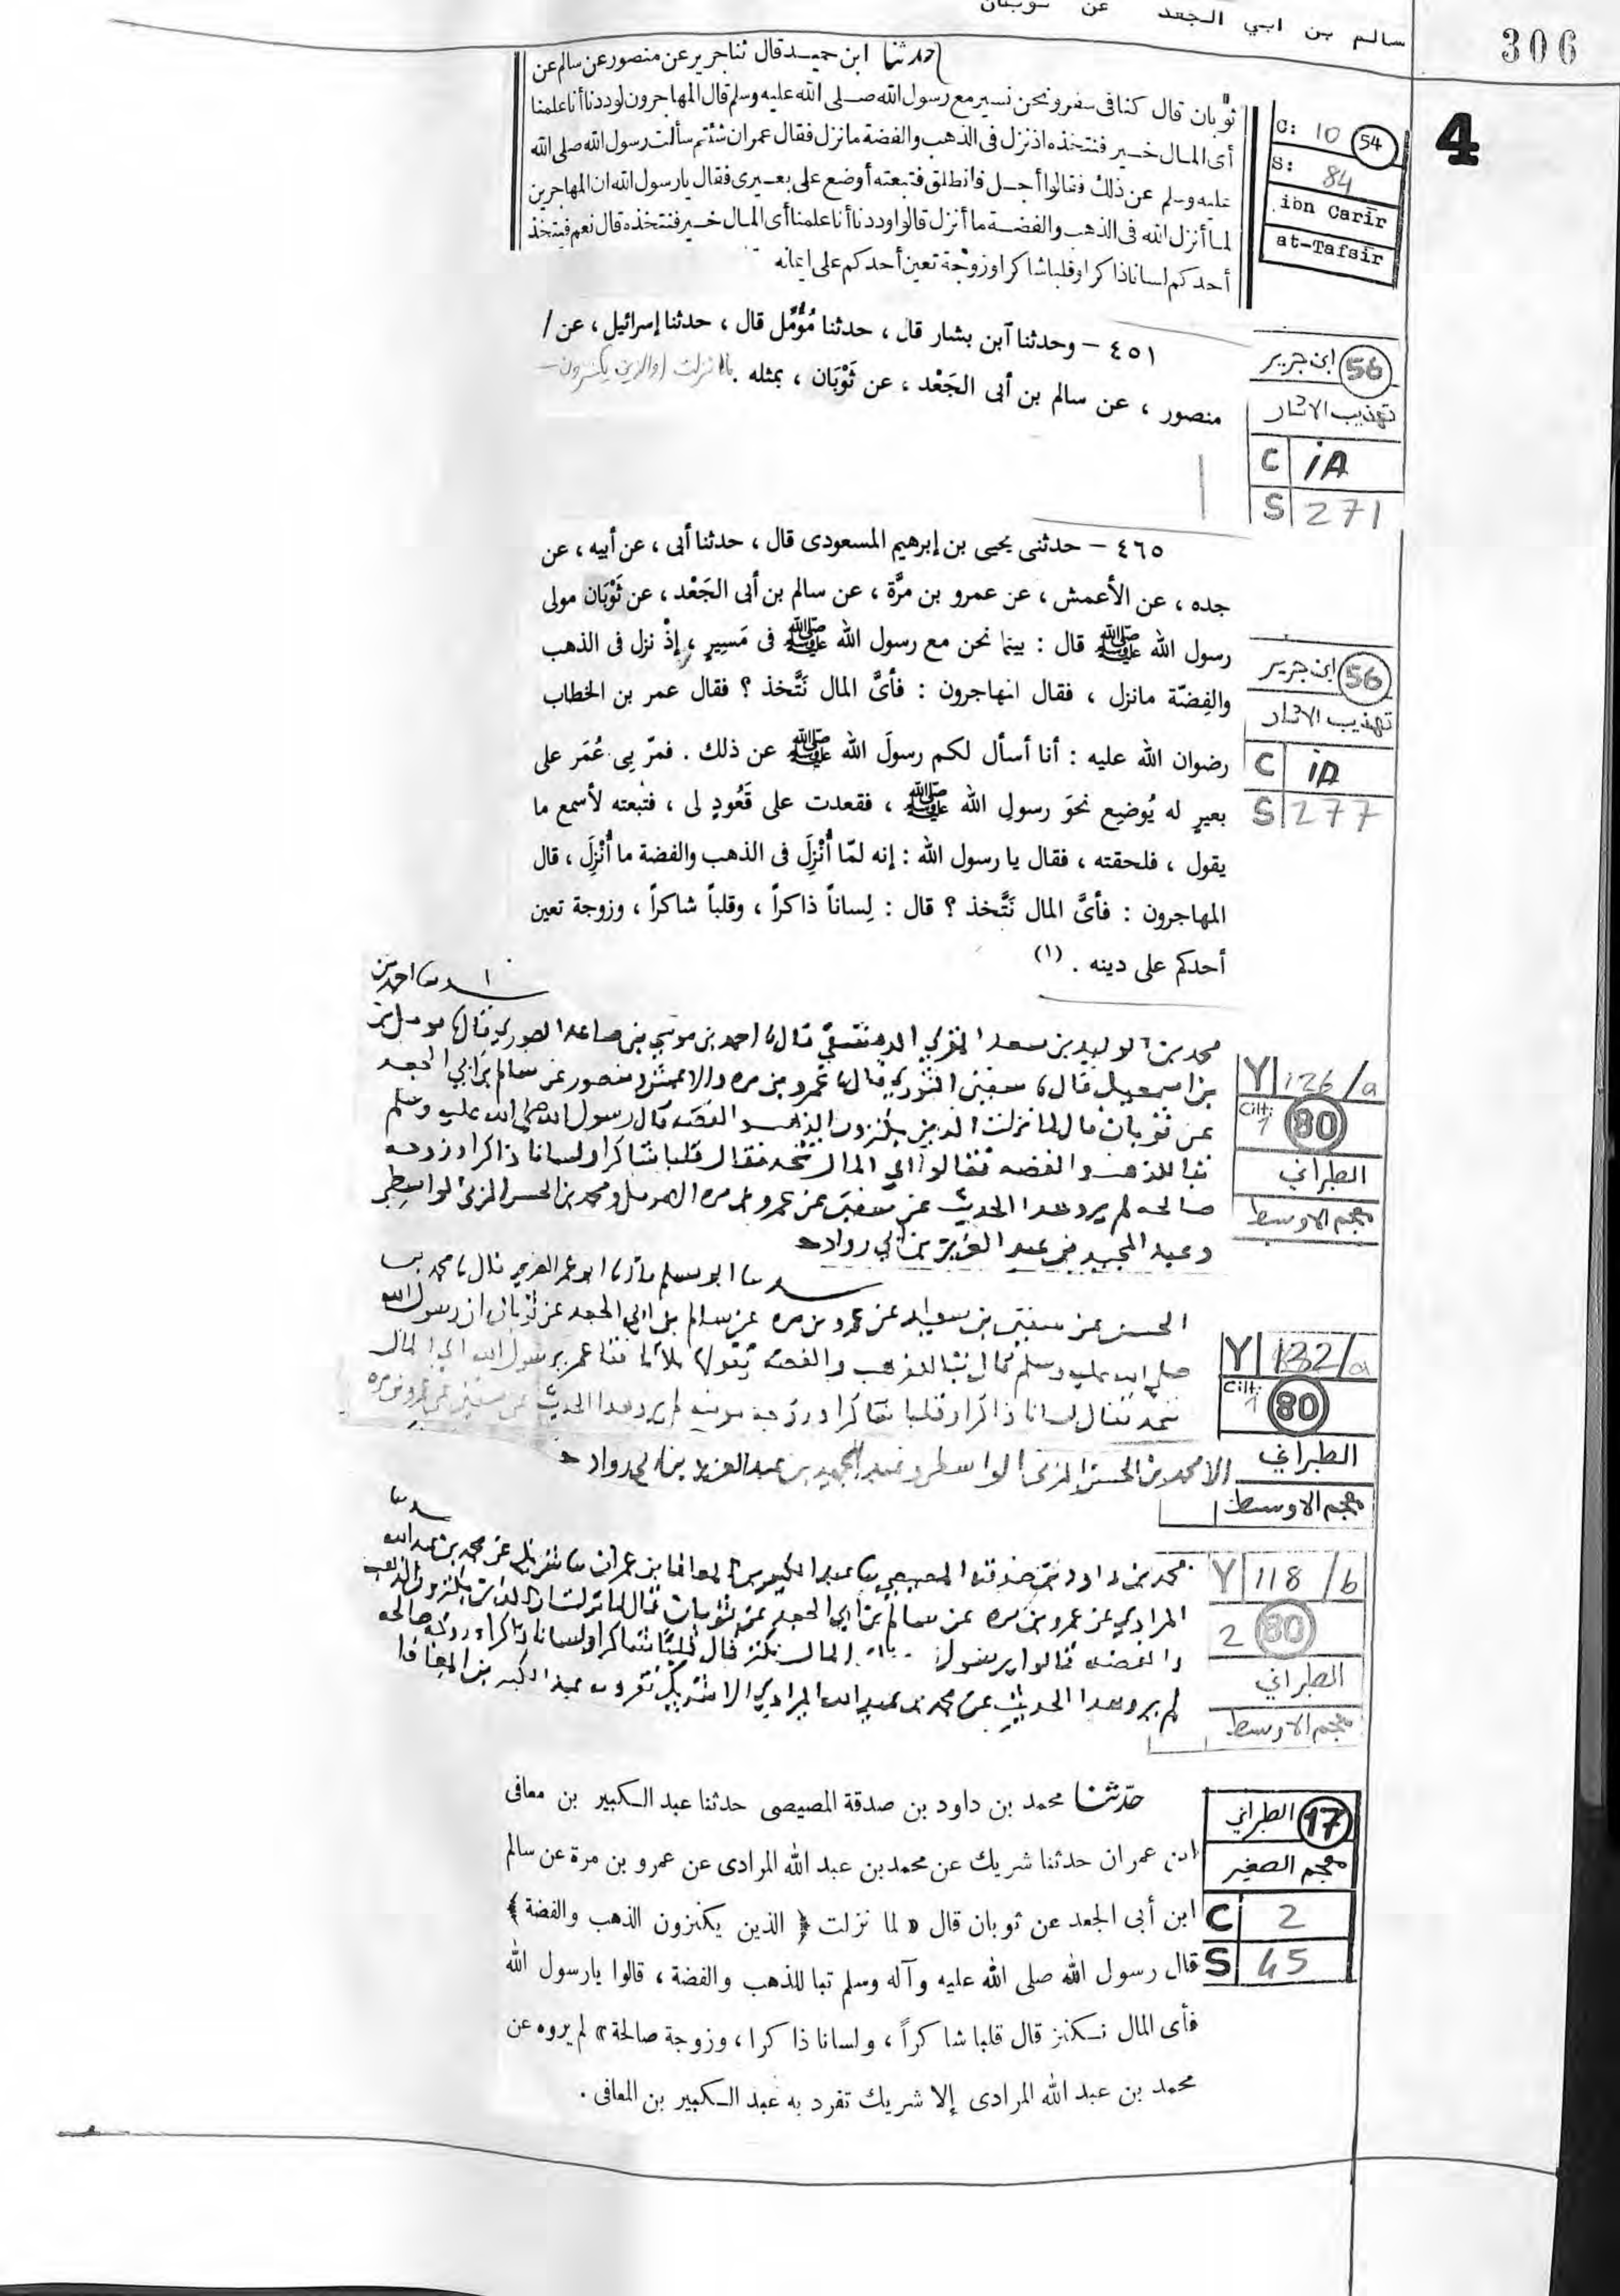 سالم بن ابي الجعد عن ثوبان
306
4
C: 10 54
S: 84
ibn Carir
at-Tafsir
حدثنا ابن حميد قال ثنا جرير عن منصور عن سالم عن
ثوبان قال كنا في سفر ونحن نسير مع رسول الله صلى الله عليه وسلم قال المهاجرون لوددنا أنا علمنا
أى المال خير فنتخذه اذ نزل فى الذهب والفضة ما نزل فقال عمر ان شئتم سألت رسول الله صلى الله
عليه وسلم عن ذلك فقالوا أجل فانطلق فتبعته أوضع على بعيرى فقال يا رسول الله ان المهاجرين
لما أنزل الله فى الذهب والفضة ما أنزل قالوا وددنا أنا علمنا أى المال خير فنتخذه قال نعم فيتخذ
أحدكم لسانا ذاكرا وقلبا شاكرا وزوجة تعين أحدكم على ايمانه
ابن جرير 56
تهذيب الاثار
C iA
S 271
٤٥١ – وحدثنا آبن بشار قال ، حدثنا مُؤَمَّل قال ، حدثنا إسرائيل ، عن /
منصور ، عن سالم بن أبى الجَعْد ، عن ثَوْبَان ، بمثله . لما نزلت (والذين يكنزون–
٤٦٥ – حدثنى يحيى بن إبرهيم المسعودى قال ، حدثنا أبى ، عن أبيه ، عن
جده ، عن الأعمش ، عن عمرو بن مرَّة ، عن سالم بن أبى الجَعْد ، عن ثَوْبَان مولى
رسول الله ﷺ قال : بينما نحن مع رسول الله ﷺ فى مَسِيرٍ ، إذْ نزل فى الذهب
والفِضّة مانزل ، فقال المهاجرون : فأىَّ المال نَتَّخذ ؟ فقال عمر بن الخطاب
رضوان الله عليه : أنا أسأل لكم رسولَ الله ﷺ عن ذلك . فمرّ بى عُمَر على
بعيرٍ له يُوضِع نحوَ رسولِ الله ﷺ ، فقعدت على قَعُودٍ لى ، فتبعته لأسمع ما
يقول ، فلحقته ، فقال يا رسول الله : إنه لمّا أُنْزِلَ فى الذهب والفضة ما أُنْزِلَ ، قال
المهاجرون : فأىَّ المال نَتَّخذ ؟ قال : لِساناً ذاكراً ، وقلباً شاكراً ، وزوجة تعين
أحدكم على دينه . (١)
ابن جرير 56
تهذيب الاثار
C iA
S 277
حدثنا احمد بن
محمد بن الوليد بن سعد المري الدمشقي قال نا احمد بن موسي بن صاعد الصوري قال نا مومل بن
بن اسمعيل قال نا سفين الثوري قال نا عمرو بن مره والاعمش ومنصور عن سالم بن ابي الجعد
عن ثوبان قال لما نزلت الذين يكنزون الذهب والفضه قال رسول الله صلى الله عليه وسلم
تبا للذهب والفضه فقالوا اي المال نتخذ فقال قلبا شاكرا ولسانا ذاكرا وزوجه
صالحه لم يرو هذا الحديث عن سفين عن عمرو بن مره الا مومل ومحمد بن الحسن المزني الواسطي
وعبد المجيد بن عبد العزيز بن ابي رواد
Y 126/a
Cilt: 1 80
الطبراني
معجم الاوسط
حدثنا ابو مسلم قال نا ابو عمر الضرير قال نا محمد بن
الحسن عن سفين بن سعيد عن عمرو بن مره عن سالم بن ابي الجعد عن ثوبان ان رسول الله
صلى الله عليه وسلم قال تبا للذهب والفضه يقولها ثلاثا فقال عمر يرسول الله اي المال
نتخذ فقال لسانا ذاكرا وقلبا شاكرا وزوجه مومنه لم يرو هذا الحديث عن سفين عن عمرو بن مره
الا محمد بن الحسن المزني الواسطي وعبد المجيد بن عبد العزيز بن ابي رواد
Y 132/a
Cilt: 1 80
الطبراني
معجم الاوسط
حدثنا
محمد بن داود بن صدقه المصيصي نا عبد الكبير بن المعافا بن عمران نا شريك عن محمد بن عبد الله
المرادي عن عمرو بن مره عن سالم بن ابي الجعد عن ثوبان قال لما نزلت الذين يكنزون الذهب
والفضه قالوا يرسول المال نكنز قال قلبا شاكرا ولسانا ذاكرا وزوجه صالحه
لم يرو هذا الحديث عن محمد بن عبد الله المرادي الا شريك تفرد به عبد الكبير بن المعافا
Y 118/b
2 80
الطبراني
معجم الاوسط
حدّثنا محمد بن داود بن صدقة المصيصى حدثنا عبد الكبير بن معافى
ابن عمران حدثنا شريك عن محمد بن عبد الله المرادى عن عمرو بن مرة عن سالم
ابن أبى الجعد عن ثوبان قال « لما نزلت ﴿ الذين يكنزون الذهب والفضة ﴾
قال رسول الله صلى الله عليه وآله وسلم تبا للذهب والفضة ، قالوا يارسول الله
فأى المال نكنز قال قلبا شاكراً ، ولسانا ذاكرا ، وزوجة صالحة » لم يروه عن
محمد بن عبد الله المرادى إلا شريك تفرد به عبد الكبير بن المعافى .
الطبراني 17
معجم الصغير
C 2
S 45